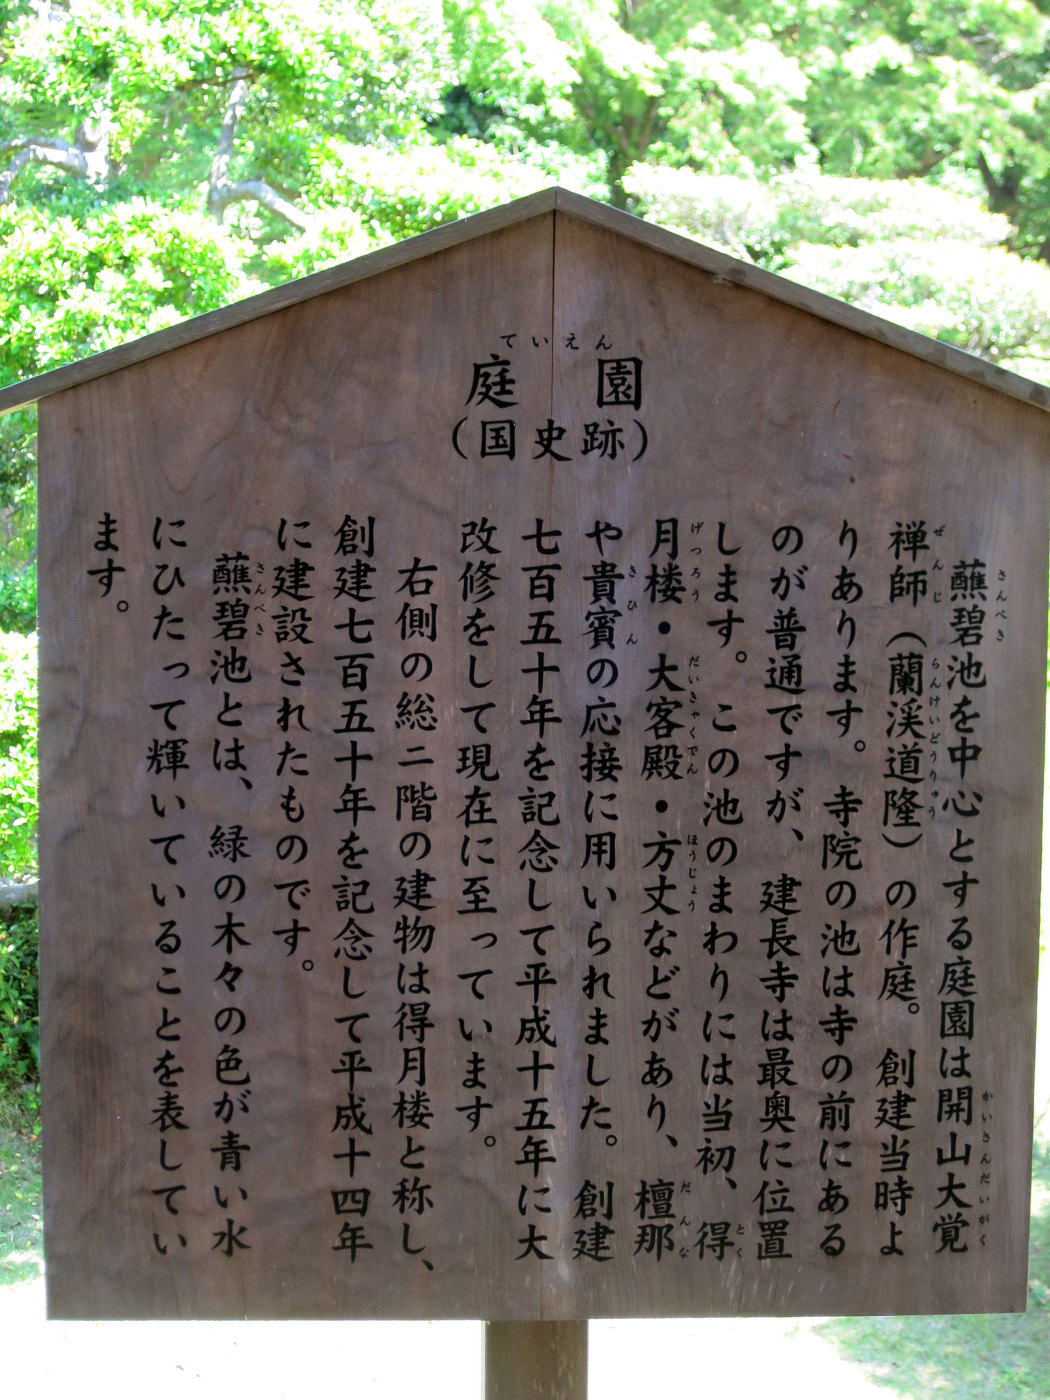 ていえん
庭園
（国史跡）
蘸碧池を中心とする庭園は開山大覚
さんぺき
かいさんだいがく
禅師（蘭渓道隆）の作庭。創建当時よ
ぜんじ
らんけいどうりゅう
りあります。寺院の池は寺の前にある
のが普通ですが、建長寺は最奥に位置
します。この池のまわりには当初、得
とく
月楼・大客殿・方丈などがあり、檀那
げつろう
だいきゃくでん
ほうじょう
だんな
や貴賓の応接に用いられました。創建
きひん
七百五十年を記念して平成十五年に大
改修をして現在に至っています。
右側の総二階の建物は得月楼と称し、
創建七百五十年を記念して平成十四年
に建設されたものです。
蘸碧池とは、緑の木々の色が青い水
さんぺき
にひたって輝いていることを表してい
ます。